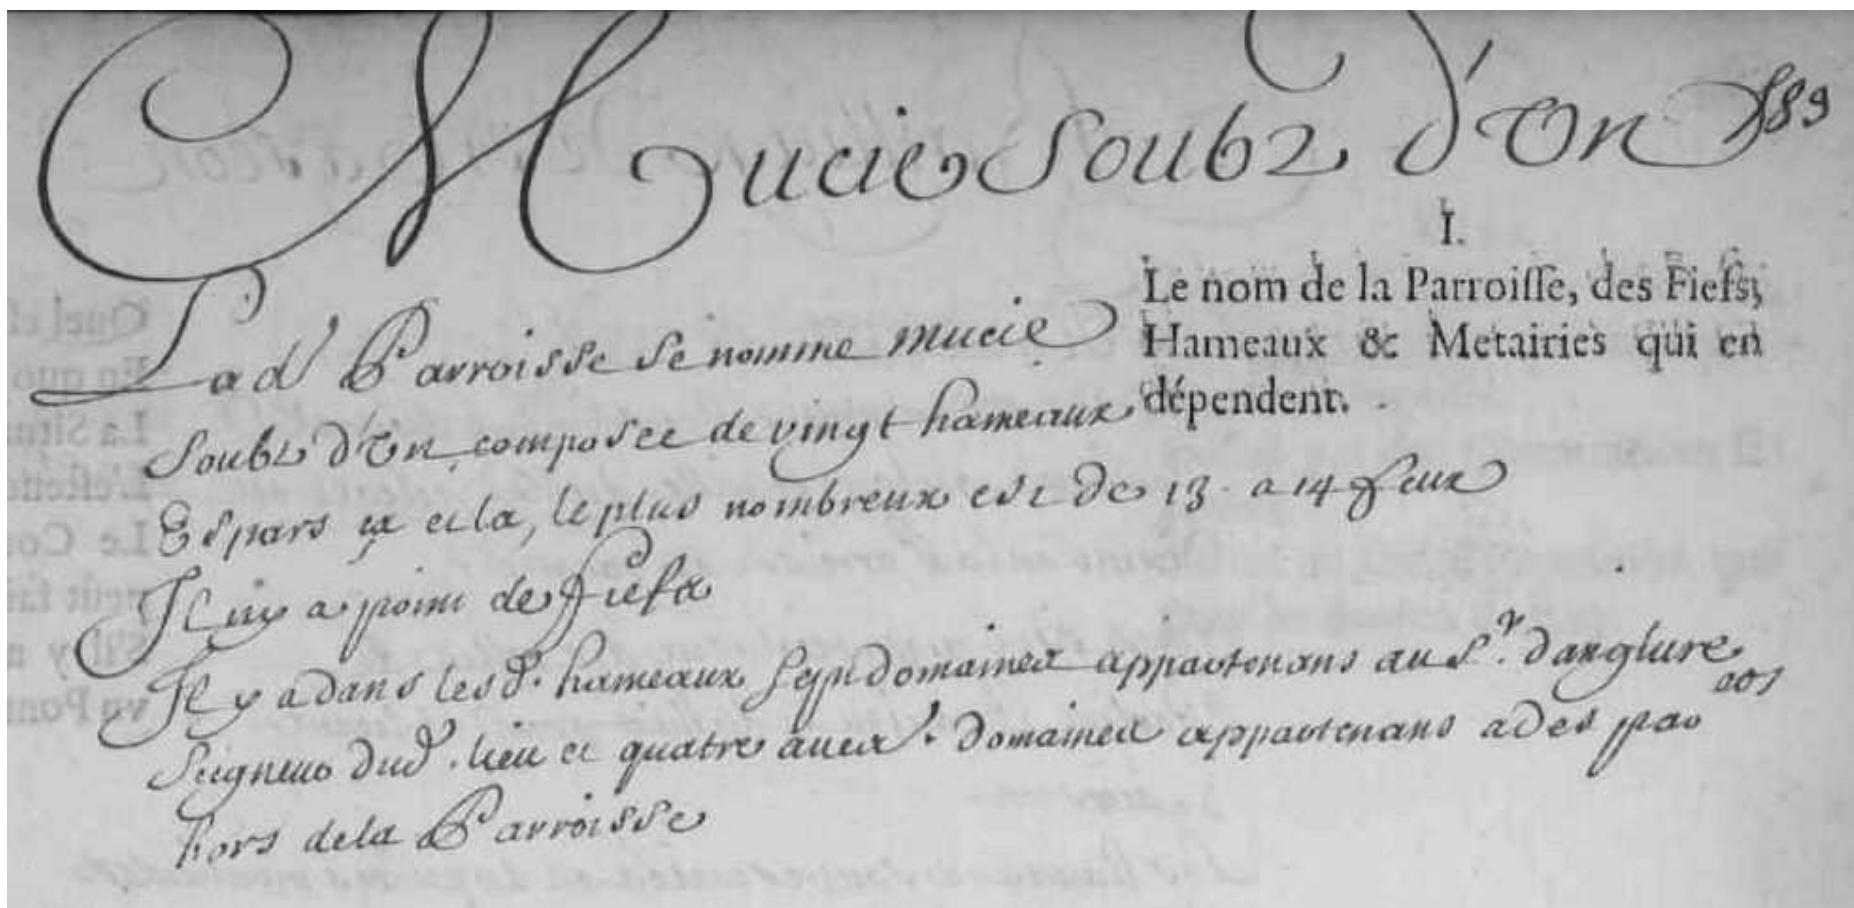 Mucie Soubz d'Un 589
I.
Le nom de la Parroisse, des Fiefs,
Hameaux & Metairies qui en
dépendent.
Lad Parroisse se nomme mucie
Soubz d'Un composee de vingt hameaux
Espars ça et la, le plus nombreux est de 13. a 14 feux
Il ny a point de fiefs
Il y a dans lesd. hameaux sept domaines appartenans au Sr. danglure
Seigneur dud. lieu et quatre aux. domaines appartenans a des
hors de la Parroisse